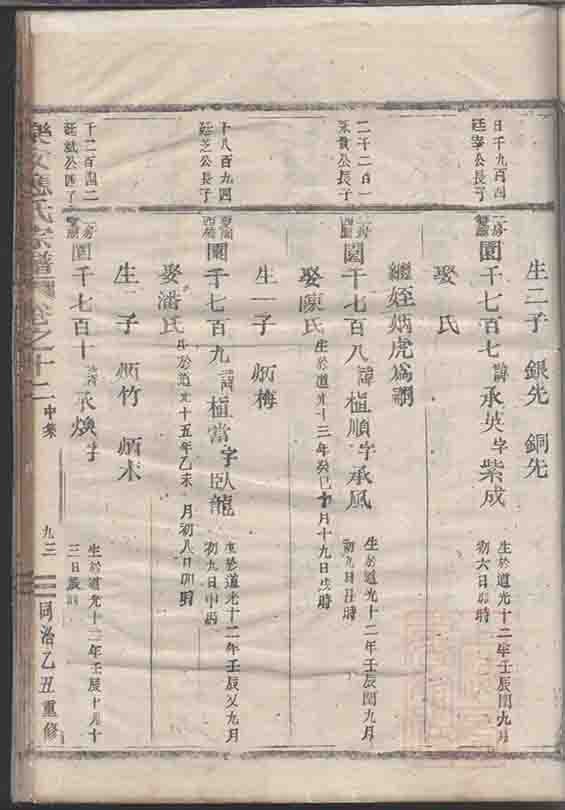 生二子 銀先 銅先
日千九百四
廷宰公長子
園千七百七 諱承英字紫成 生於道光十二年壬辰閏九月
初六日 時
娶 氏
繼姪炳虎為嗣
二千二百一
公長子
園千七百八 諱植順字承風 生於道光十二年壬辰閏九月
初九日 時
娶陳氏 生於道光十三年癸巳十月十九日 時
生一子 炳梅
千八百九四
廷芝公長子
園千七百九 諱植當字臥龍 生於道光十二年壬辰又九月
初九日申時
娶潘氏 生於道光十五年乙未 月初八日卯時
生二子 炳竹 炳木
千二百四二
廷 公四子
園千七百十 諱承煥字 生於道光十二年壬辰十月十
三日
應氏宗譜 卷之十二 中集 九三 同治乙丑重修